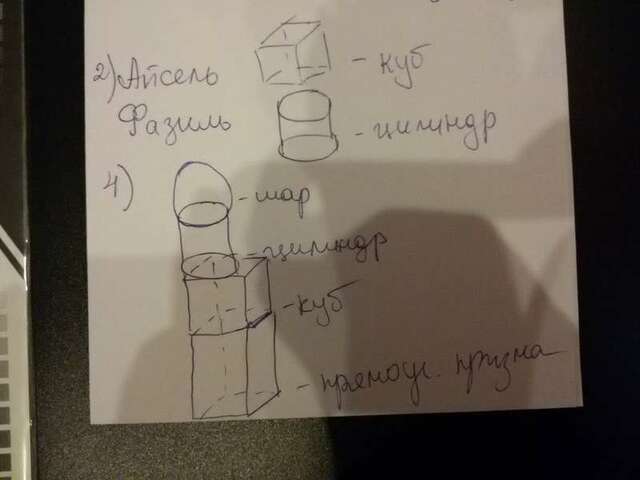 2) Айсель - куб
Фазиль - цилиндр
4) - шар
- цилиндр
- куб
- прямоуг. призма